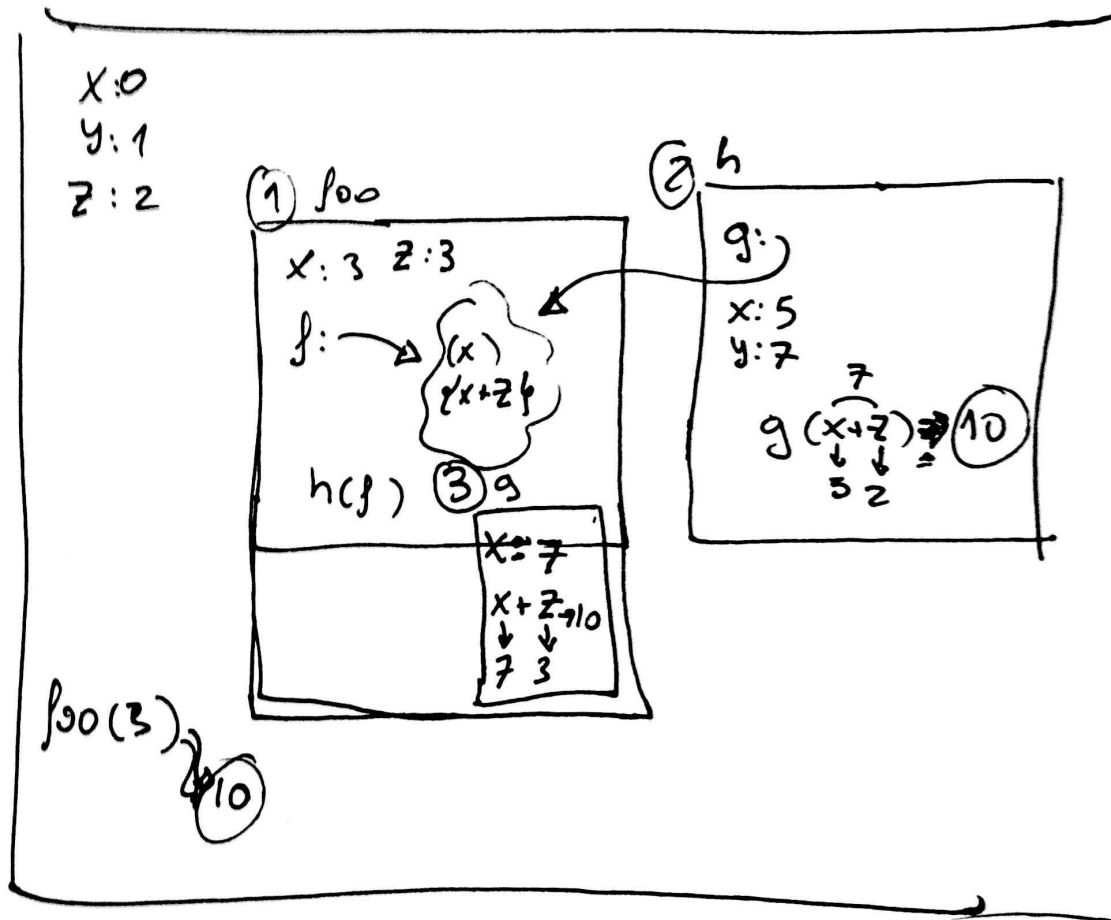 x:0
y:1
z:2
1 foo
x:3 z:3
f:
(x)
{x+z}
h(f)
3 g
x=7
x+z→10
↓ ↓
7 3
2 h
g:
x:5
y:7
7
g(x+z)⇒10
↓ ↓
5 2
foo(3)
10